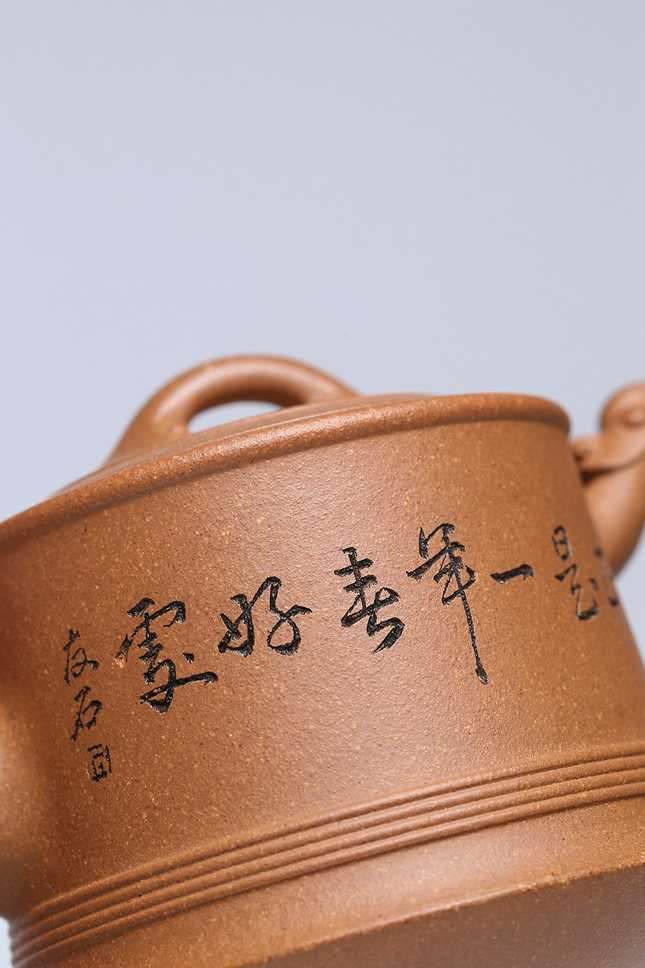 是一年春好處
友石